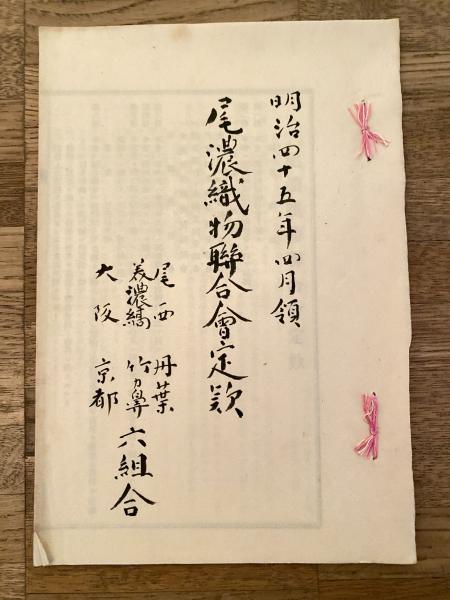 明治四十五年四月領
尾濃織物聯合會定欵
尾西 丹葉
美濃縞 竹ヶ鼻
大阪 京都
六組合